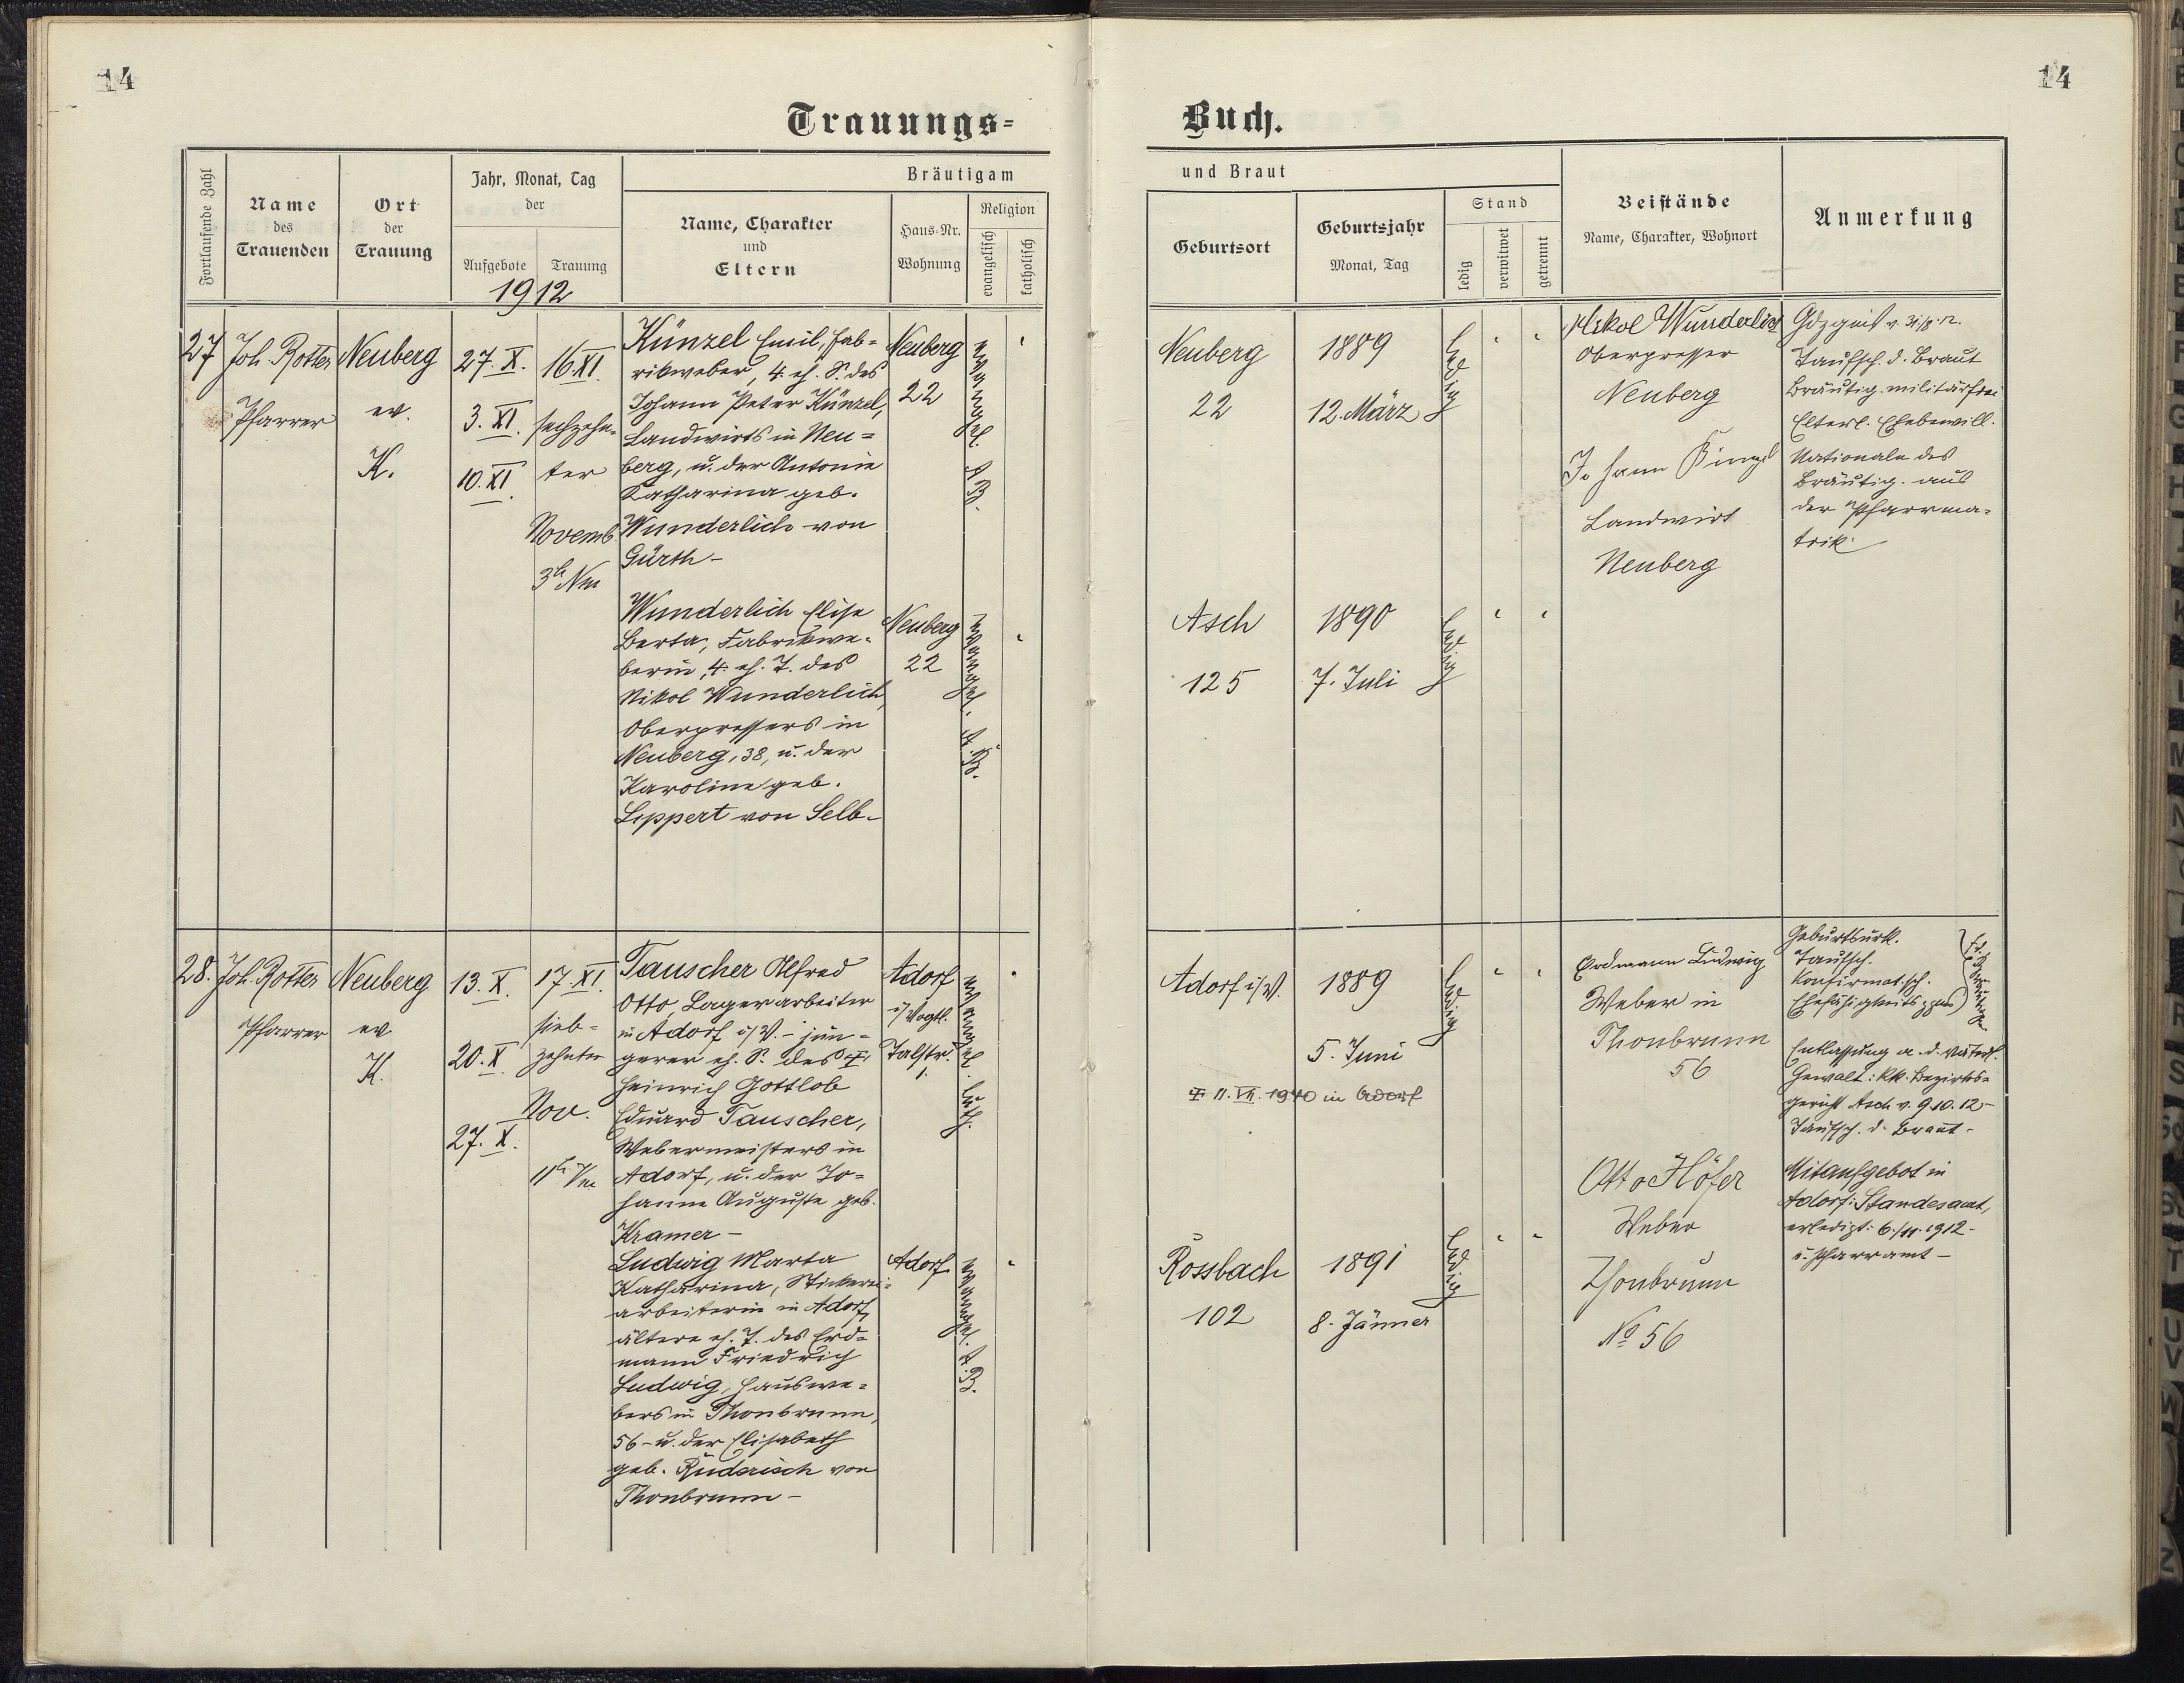 14
14
Trauungs=
Buch.
Fortlaufende Zahl
Name
des
Trauenden
Ort
der
Trauung
Jahr, Monat, Tag
der
Aufgebote
Trauung
1912
Bräutigam
Name, Charakter
und
Eltern
Haus-Nr.
Wohnung
Religion
evangelisch
katholisch
und Braut
Geburtsort
Geburtsjahr
Monat, Tag
Stand
ledig
verwitwet
getrennt
Beistände
Name, Charakter, Wohnort
Anmerkung
27
Joh. Rotter
Pfarrer
Neuberg
ev.
K.
27. X.
3. XI.
10. XI.
16. XI.
sechzehn=
ter
Novemb.
3h Nm
Künzel Emil, Fab=
rikweber, 4. eh. S. des
Johann Peter Künzel,
Landwirts in Neu=
berg, u. der Antonie
Katharina geb.
Wunderlich von
Gürth-
Neuberg
22
evangel.
A.B.
Neuberg
22
1889
12. März
ledig
Nikol Wunderlich
Oberpresser
Neuberg
Johann Künzel
Landwirt
Neuberg
v. 31/8.12.
Taufsch. d. Braut
Bräutig. militärfrei
Elterl. Ehebewill.
Nationale des
Bräutig. aus
der Pfarrma=
trik
Wunderlich Elise
Berta, Fabrikwe=
berin, 4. eh. T. des
Nikol Wunderlich,
Oberpressers in
Neuberg, 38, u. der
Karoline geb.
Lippert von Selb-
Neuberg
22
evangel.
A.B.
Asch
125
1890
7. Juli
ledig
28.
Joh. Rotter
Pfarrer
Neuberg
ev.
K.
13. X.
20. X.
27. X.
17. XI.
sieb=
zehnter
Nov.
11h Vm
Tauscher Alfred
Otto, Lagerarbeiter
in Adorf i/V.- jün=
gerer eh. S. des †
Heinrich Gottlob
Eduard Tauscher,
Webermeisters in
Adorf, u. der Jo=
hanne Auguste geb.
Kramer-
Adorf
i/Vogtl.
Talstr.
1.
evangel.
luth.
Adorf i/V.
1889
5. Juni
† 11. VII. 1940 in Adorf
ledig
Erdmann Ludwig
Weber in
Thonbrunn
56
Otto Höfer
Weber
Thonbrunn
No 56
Geburtsurk.
Taufsch.
Konfirmat.sch.
Entlassung a. d. väterl.
Gewalt: kk. Bezirks=
gericht Asch v. 9 10. 12-
Taufsch. d. Braut-
Mitaufgebot in
Adorf: Standesamt,
erledigt: 6./11. 1912-
u. Pfarramt-
Ludwig Marta
Katharina, Stickerei=
arbeiterin in Adorf,
ältere eh. T. des Erd=
mann Friedrich
Ludwig, Hauswe=
bers in Thonbrunn,
56- u. der Elisabeth
geb. Ruderisch von
Thonbrunn-
Adorf
evangel.
A.B.
Rossbach
102
1891
8. Jänner
ledig